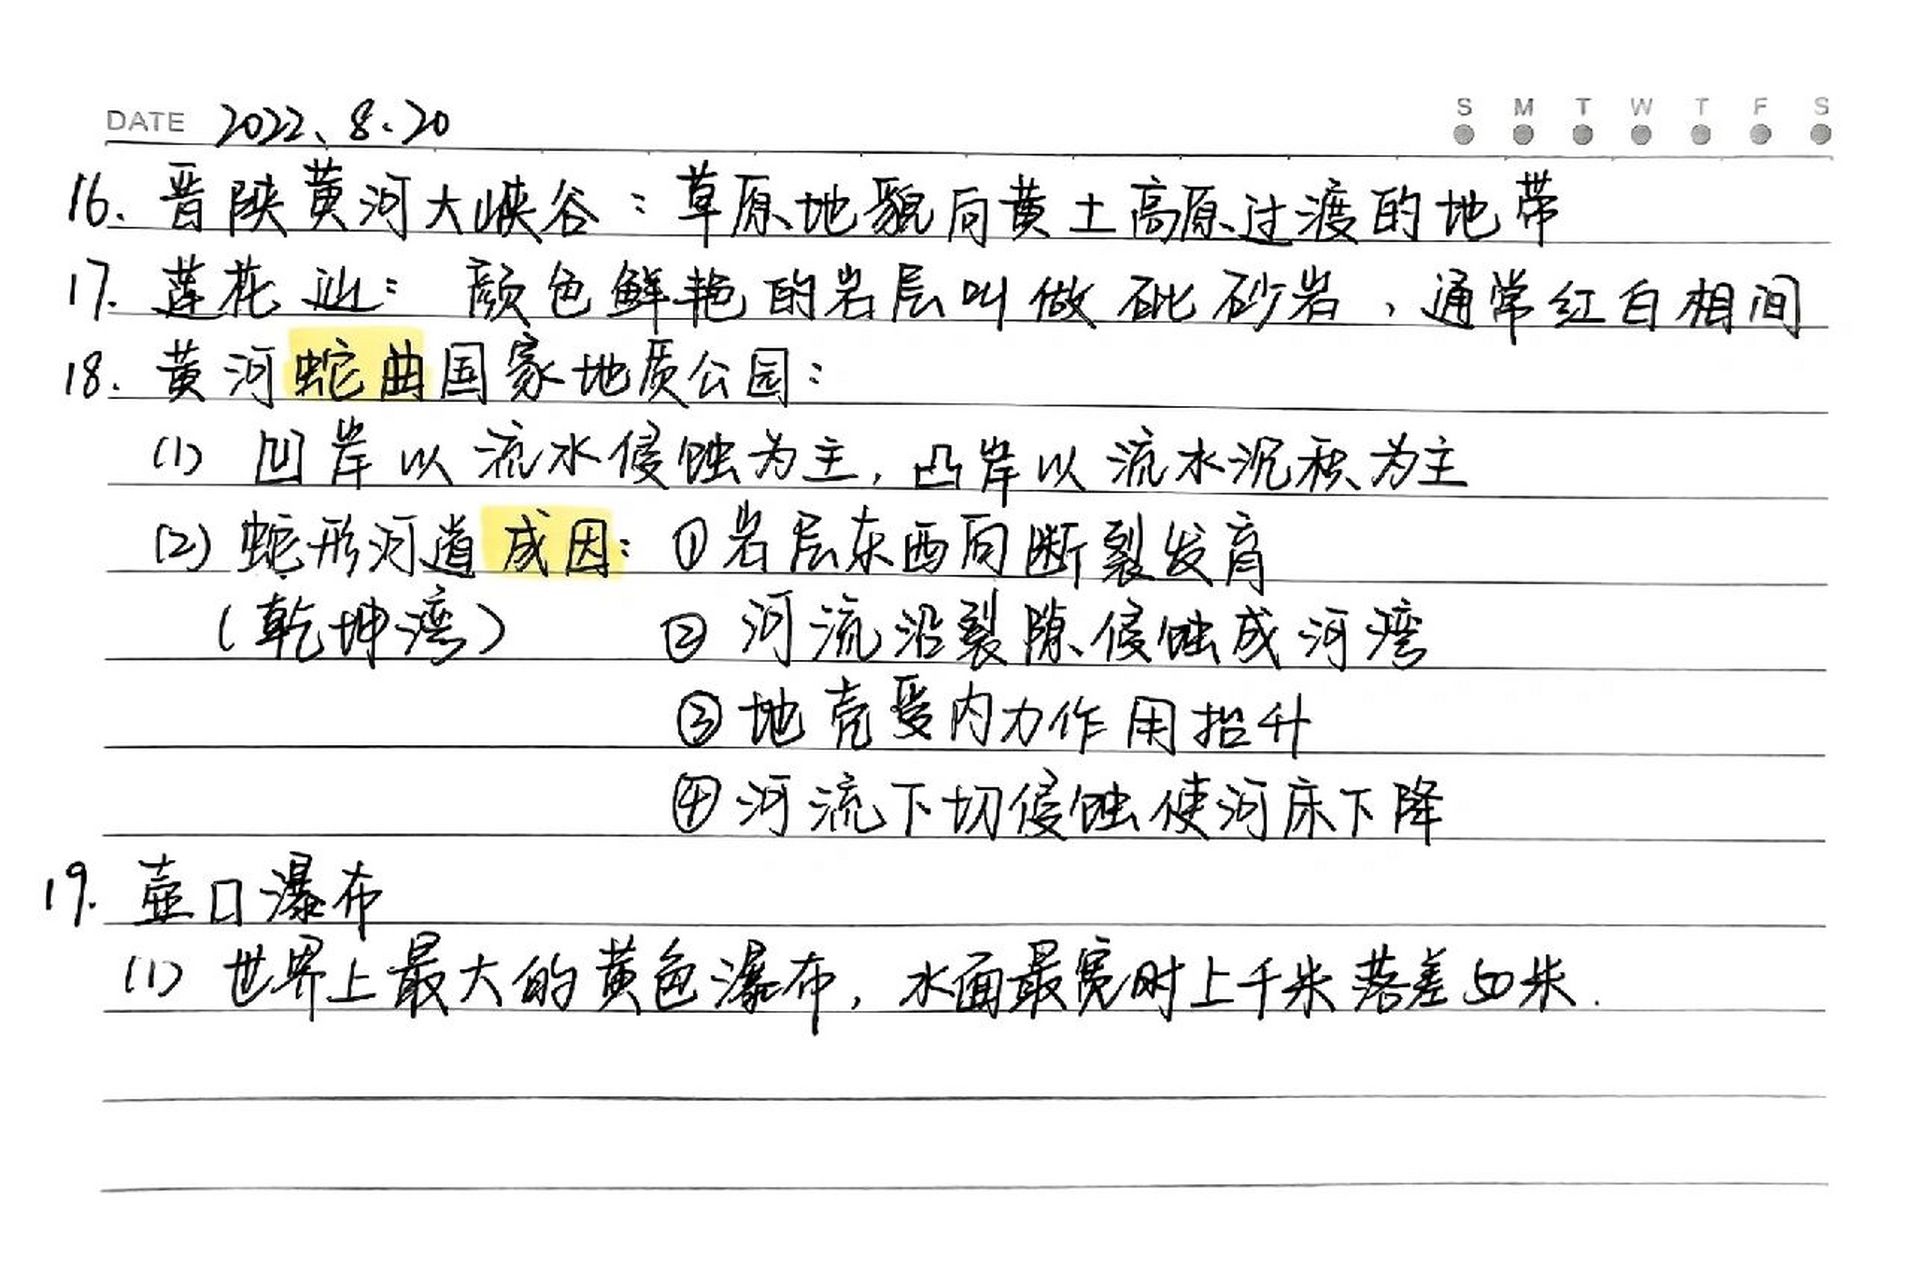 DATE 2022.8.20 S M T W T F S
16. 晋陕黄河大峡谷：草原地貌向黄土高原过渡的地带
17. 莲花辿：颜色鲜艳的岩层叫做砒砂岩，通常红白相间
18. 黄河蛇曲国家地质公园：
(1) 凹岸以流水侵蚀为主，凸岸以流水沉积为主
(2) 蛇形河道成因：①岩层东西向断裂发育
(乾坤湾) ②河流沿裂隙侵蚀成河湾
③地壳受内力作用抬升
④河流下切侵蚀使河床下降
19. 壶口瀑布
(1) 世界上最大的黄色瀑布，水面最宽时上千米落差50米.